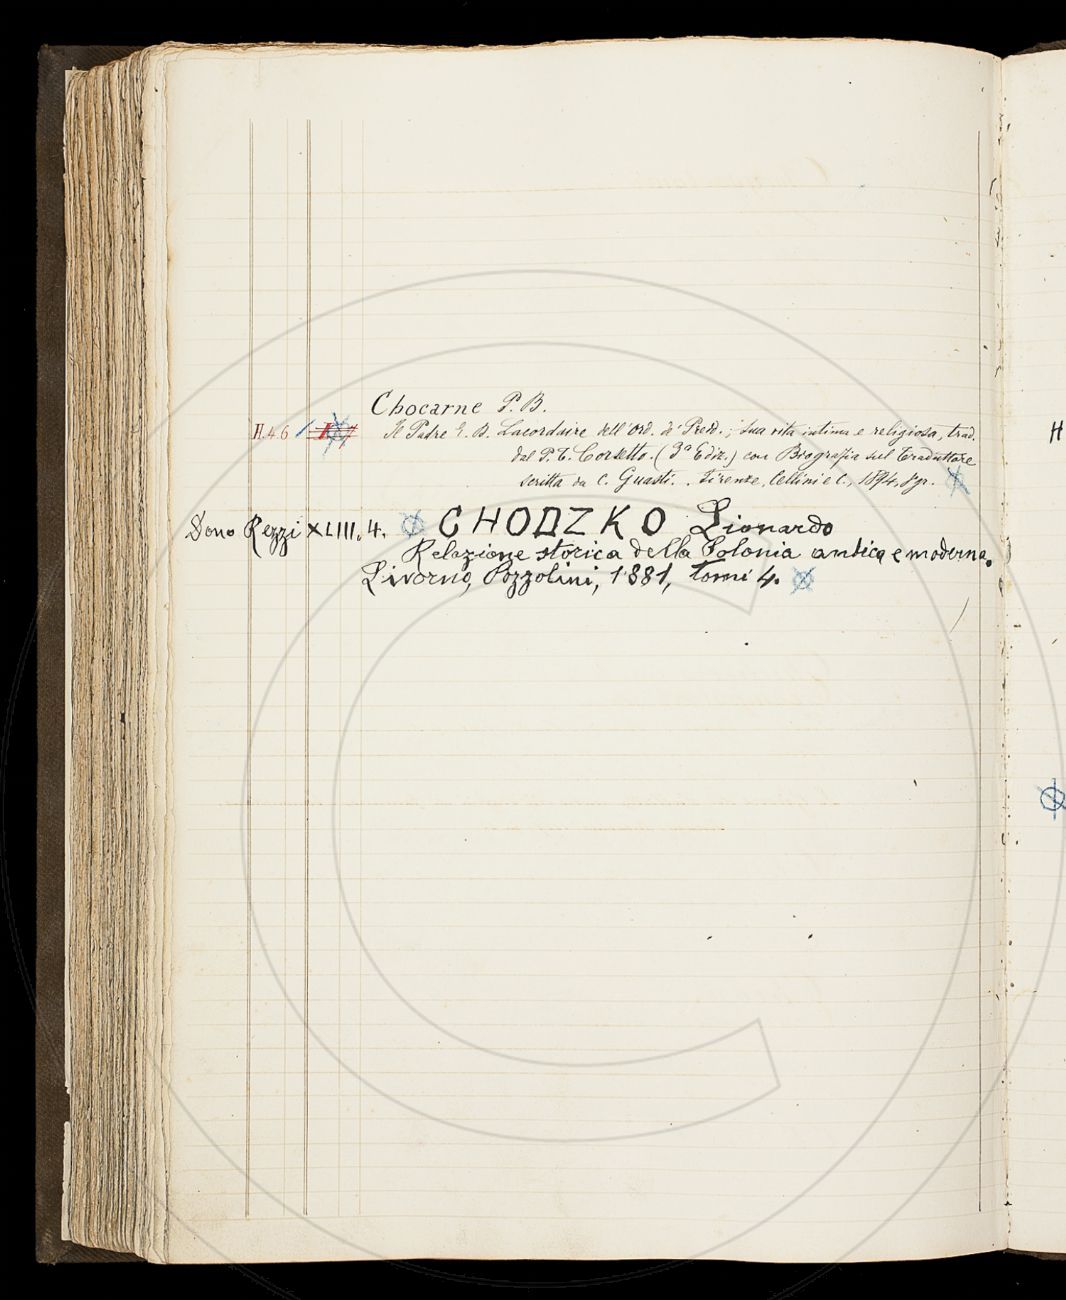 Chocarne P. B.
H.46 Il Padre E. D. Lacordaire dell'Ord. de' Pred.; sua vita intima e religiosa, trad. H
dal P. T. Corsetto. (3ª Ediz.) con Biografia sul Traduttore
scritta da C. Guasti. . Firenze, Cellini e C., 1874, 8° gr.
Dono Rezzi XLIII. 4. CHODZKO Lionardo
Relazione storica della Polonia antica e moderna.
Livorno, Pozzolini, 1881, Tomi 4.